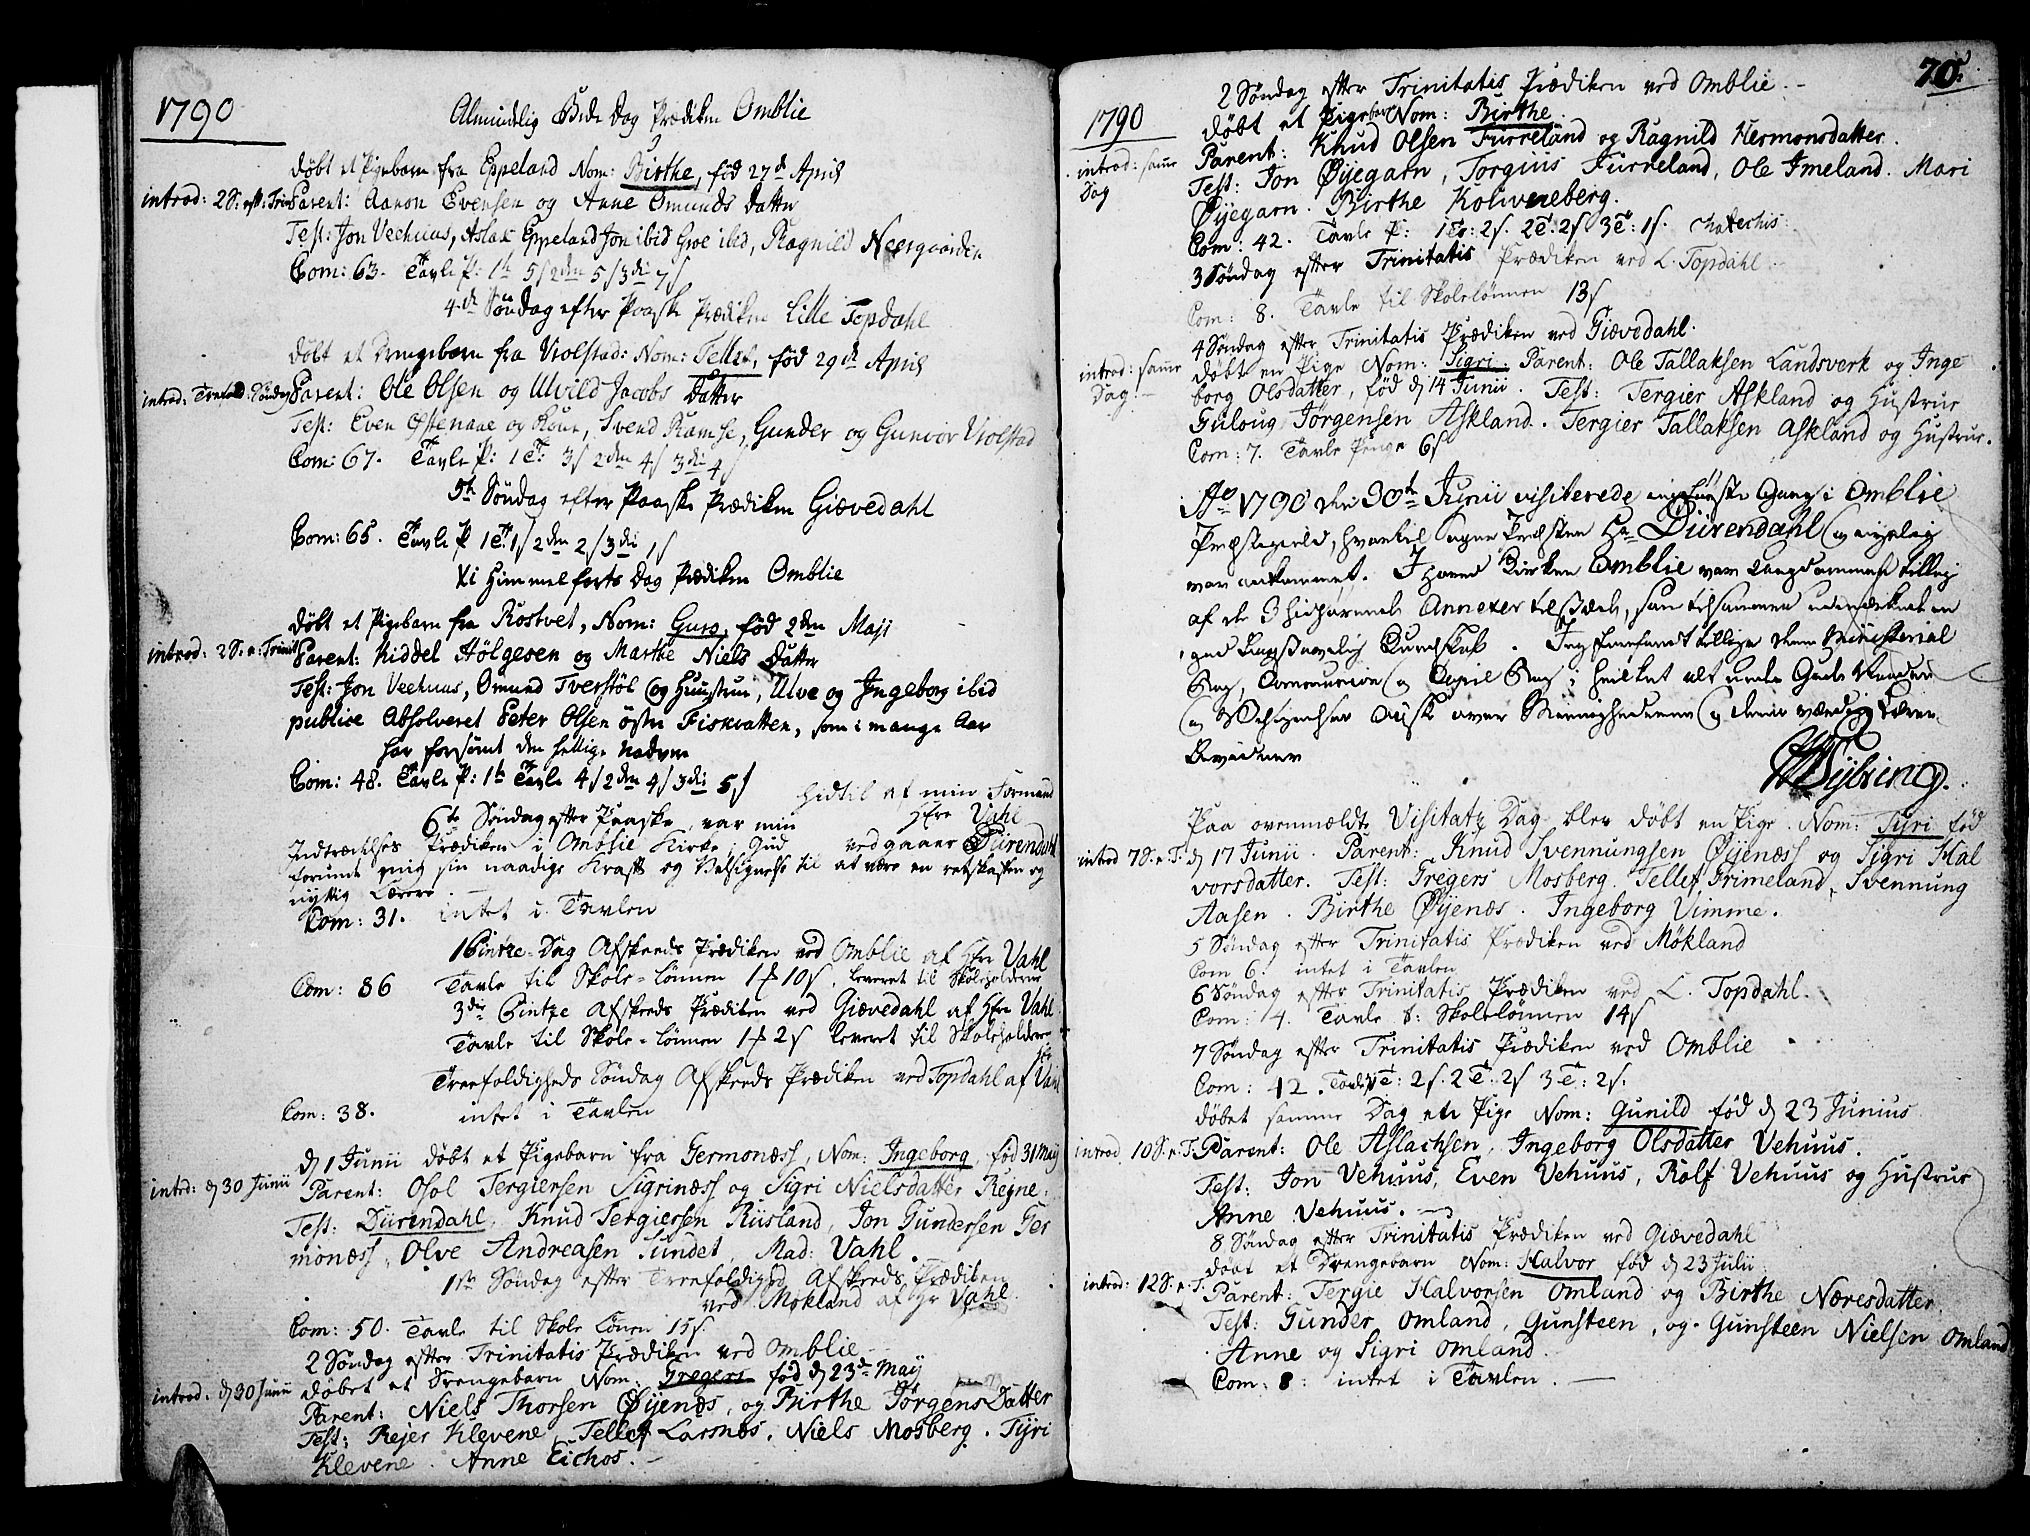 1790
Almindelig Bede Dag Prædiken Omblie
døbt et Pigebarn fra Eppeland Nom: Birthe, fød 27de April
introd: 2 S: eft: Trin:
Parent: Aanon Evensen og Anne Omunds Datter
Test: Jon Veehuus, Aslax Eppeland Jon ibid Groe ibid, Ragnild Neergaarden
Com: 63. Tavle P: 1te 5/ 2den 5/ 3die 7/
4de Søndag efter Paaske Prædiken Lille Topdahl
døbt et Drengebarn fra Violstad: Nom: Tellef, fød 29de April
introd: Trefold: Søndag
Parent: Ole Olsen og Ulvild Jacobs Datter
Test: Even Østenaae og Kone, Svend Ramse, Gunder og Gunvor Violstad
Com: 67. Tavle P: 1 T: 3/ 2den 4/ 3die 4/
5te Søndag efter Paaske Prædiken Giævedahl
Com: 65. Tavle P 1 T: 1/ 2den 2/ 3die 1/
Xi Himmelfarts Dag Prædiken Omblie
døbt et Pigebarn fra Rostvet, Nom: Guro, fød 2den Maji
introd: 2 S. e: Trinit
Parent: Kiddel Hølgesen og Marthe Niels Datter
Test: Jon Veehuus, Omund Tverstøl og Huustrue, Ulve og Ingeborg ibid
publice Absolveret Peter Olsen østre Fiskvatten, som i mange Aar
har forsømt den hellige Nadvere
Com: 48. Tavle P: 1te Tavle 4/ 2den 4/ 3die 5/
hidtil af min Formand
Hrre Vahl
6te Søndag efter Paaske, var min
vedgaaer Dürendahl
Indtrædelses Prædiken i Omblie Kirke; Gud
forunde mig sin naadige Kraft og Velsignelse til at være en retskaffen og
nyttig Lærere. —
Com: 31. intet i Tavlen
1 Pintze-Dag Afskeeds Prædiken ved Omblie af Hrr Vahl
Com: 86 Tavle til Skole-lønnen 1 10/. leveret til Skoleholderne
3die Pintze Afskeeds Prædiken ved Giævedahl af Hrr Vahl
Tavle til Skole-lønnen 1 2/ leveret til Skoleholderen
Treefoldigheds Søndag Afskeeds Prædiken ved Topdahl af Hr Vahl
Com: 38. intet i Tavlen
d 1 Junii døbt et Pigebarn fra Germonæss, Nom: Ingeborg, fød 31 May
introd: d 30 Junii
Parent: Osol Tergiersen Sigrinæss og Sigri Nielsdatter Reyne.
Test: Dürendahl, Knud Tergiersen Riisland, Jon Gundersen Ger
monæss, Olve Andreasen Sundet, Mad: Vahl.
1ste Søndag efter Treefoldighed Afskeeds Prædiken
ved Mokland af Hr Vahl.
Com: 50. Tavle til Skole Lönen 15/.
2 Søndag efter Trinitatis Prædiken ved Omblie
døbet et Drengebarn Nom: Gregers fød d 23de May
introd. d 30 Junii
Parent: Niels Thorsen Øyenæs, og Birthe Jørgens Datter
Test: Rejer Klevene, Tellef Larsnæs, Niels Mosberg. Tyri
Klevene. Anne Eichos. —
70.
1790
2 Søndag efter Trinitatis Prædiken ved Omblie. -
døbt et Pigebarn Nom: Birthe
introd: same Dag
Parent: Knud Olsen Furreland og Ragnild Hermonsdatter.
Test: Jon Øyegarn, Torgius Furreland, Ole Imeland. Mari
Øyegarn. Birthe Kolivneberg.
Com: 42. Tavle P: 1 T: 2/. 2 T: 2/ 3 T: 1/. Chatechis:
3 Søndag efter Trinitatis Prædiken ved L. Topdahl.
Com: 8. Tavle til Skolelønnen 13/
4 Søndag efter Trinitatis Prædiken ved Giævedahl.
introd: same Dag. —
døbt en Pige Nom: Sigri. Parent: Ole Tallaksen Landsverk og Inge
borg Olsdatter, fød d 14 Junii. Test: Tergier Askland og Hustrue
Guloug Jørgensen Askland. Tergier Tallaksen Askland og Hustrue.
Com: 7. Tavle Penge 6/
Ao 1790 den 30te Junii visiterede første Gang i Omblie
Præstegield, hvortil Sogne Præsten Hr Dürendahl nyelig
var ankommet. I Hoved Kirken Omblie var Ungdommen tillige
af de 3 hidhørende Annexer tilstæde, som tilsammen
god Kundskab. Jeg tillige denne Ministerial
Bog, og Copie Bog, i hvilket alt Guds
og over Menighederne og deres værdige Lærer.
W Sÿling.
Paa ovenmældte Visitatz Dag blev døbt en Pige. Nom: Tyri fød
introd 7 S. e T.
d 17 Junii. Parent: Knud Svennungsen Øyenæss og Sigri Hal
vorsdatter. Test: Gregers Mosberg. Tellef Grimeland, Svennung
Aasen. Birthe Øyenæs. Ingeborg Vimme.
5 Søndag efter Trinitatis Prædiken ved Møkland
Com 6: intet i Tavlen
6 Søndag efter Trinitatis Prædiken ved L. Topdahl.
Com: 4. Tavle t: Skolelønnen 14/
7 Søndag efter Trinitatis Prædiken ved Omblie
Com: 42. Tavle 1 T: 2/. 2 T: 2/ 3 T: 2/.
døbet samme Dag en Pige Nom: Gunild fød d 23 Junius
introd. 10 S. e. T.
Parent: Ole Aslachsen, Ingeborg Olsdatter Vehuus.
Test: Jon Vehuus, Even Vehuus, Rolf Vehuus og Hustrue
Anne Vehuus. —
8 Søndag efter Trinitatis Prædiken ved Giævedahl
døbt et Drengebarn Nom: Halvor fød d 23 Julii
introd: 12 S. e. T.
Parent: Tergie Halvorsen Omland og Birthe Næresdatter.
Test: Gunder Omland, Gunsteen, og Gunsteen Nielsen Omland
Anne og Sigri Omland.
Com: 8: intet i Tavlen. —